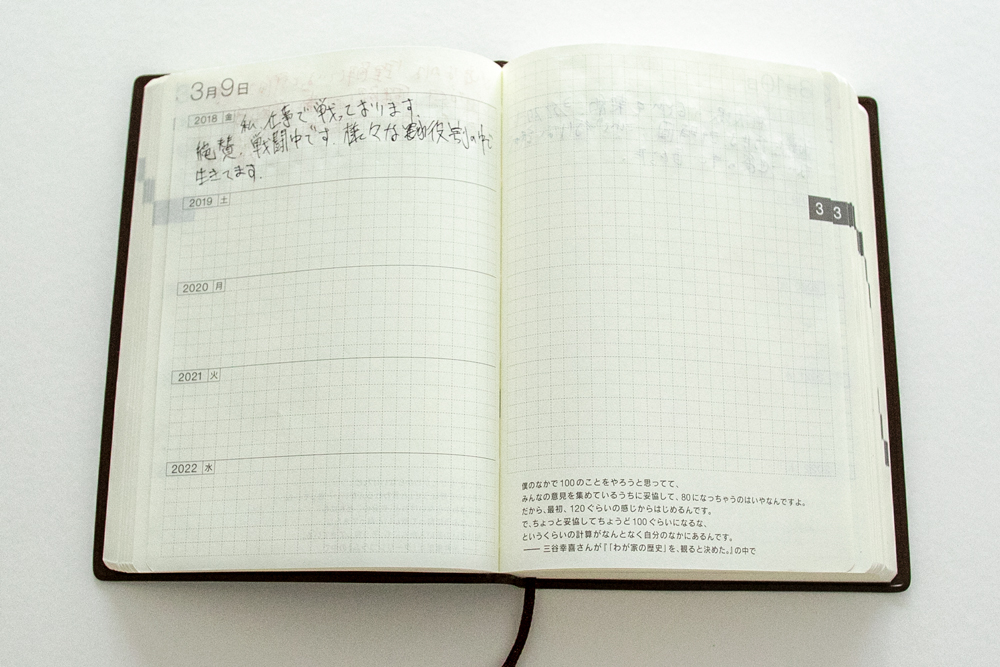 3月9日
2018 金
私、仕事で戦っております。
絶賛、戦闘中です。様々な役割の中で
生きてます。
2019 土
2020 月
2021 火
2022 水
3 3
僕のなかで100のことをやろうと思ってて、
みんなの意見を集めているうちに妥協して、80になっちゃうのはいやなんですよ。
だから、最初、120ぐらいの感じからはじめるんです。
で、ちょっと妥協してちょうど100ぐらいになるな、
というくらいの計算がなんとなく自分のなかにあるんです。
—— 三谷幸喜さんが『「わが家の歴史」を、観ると決めた。』の中で